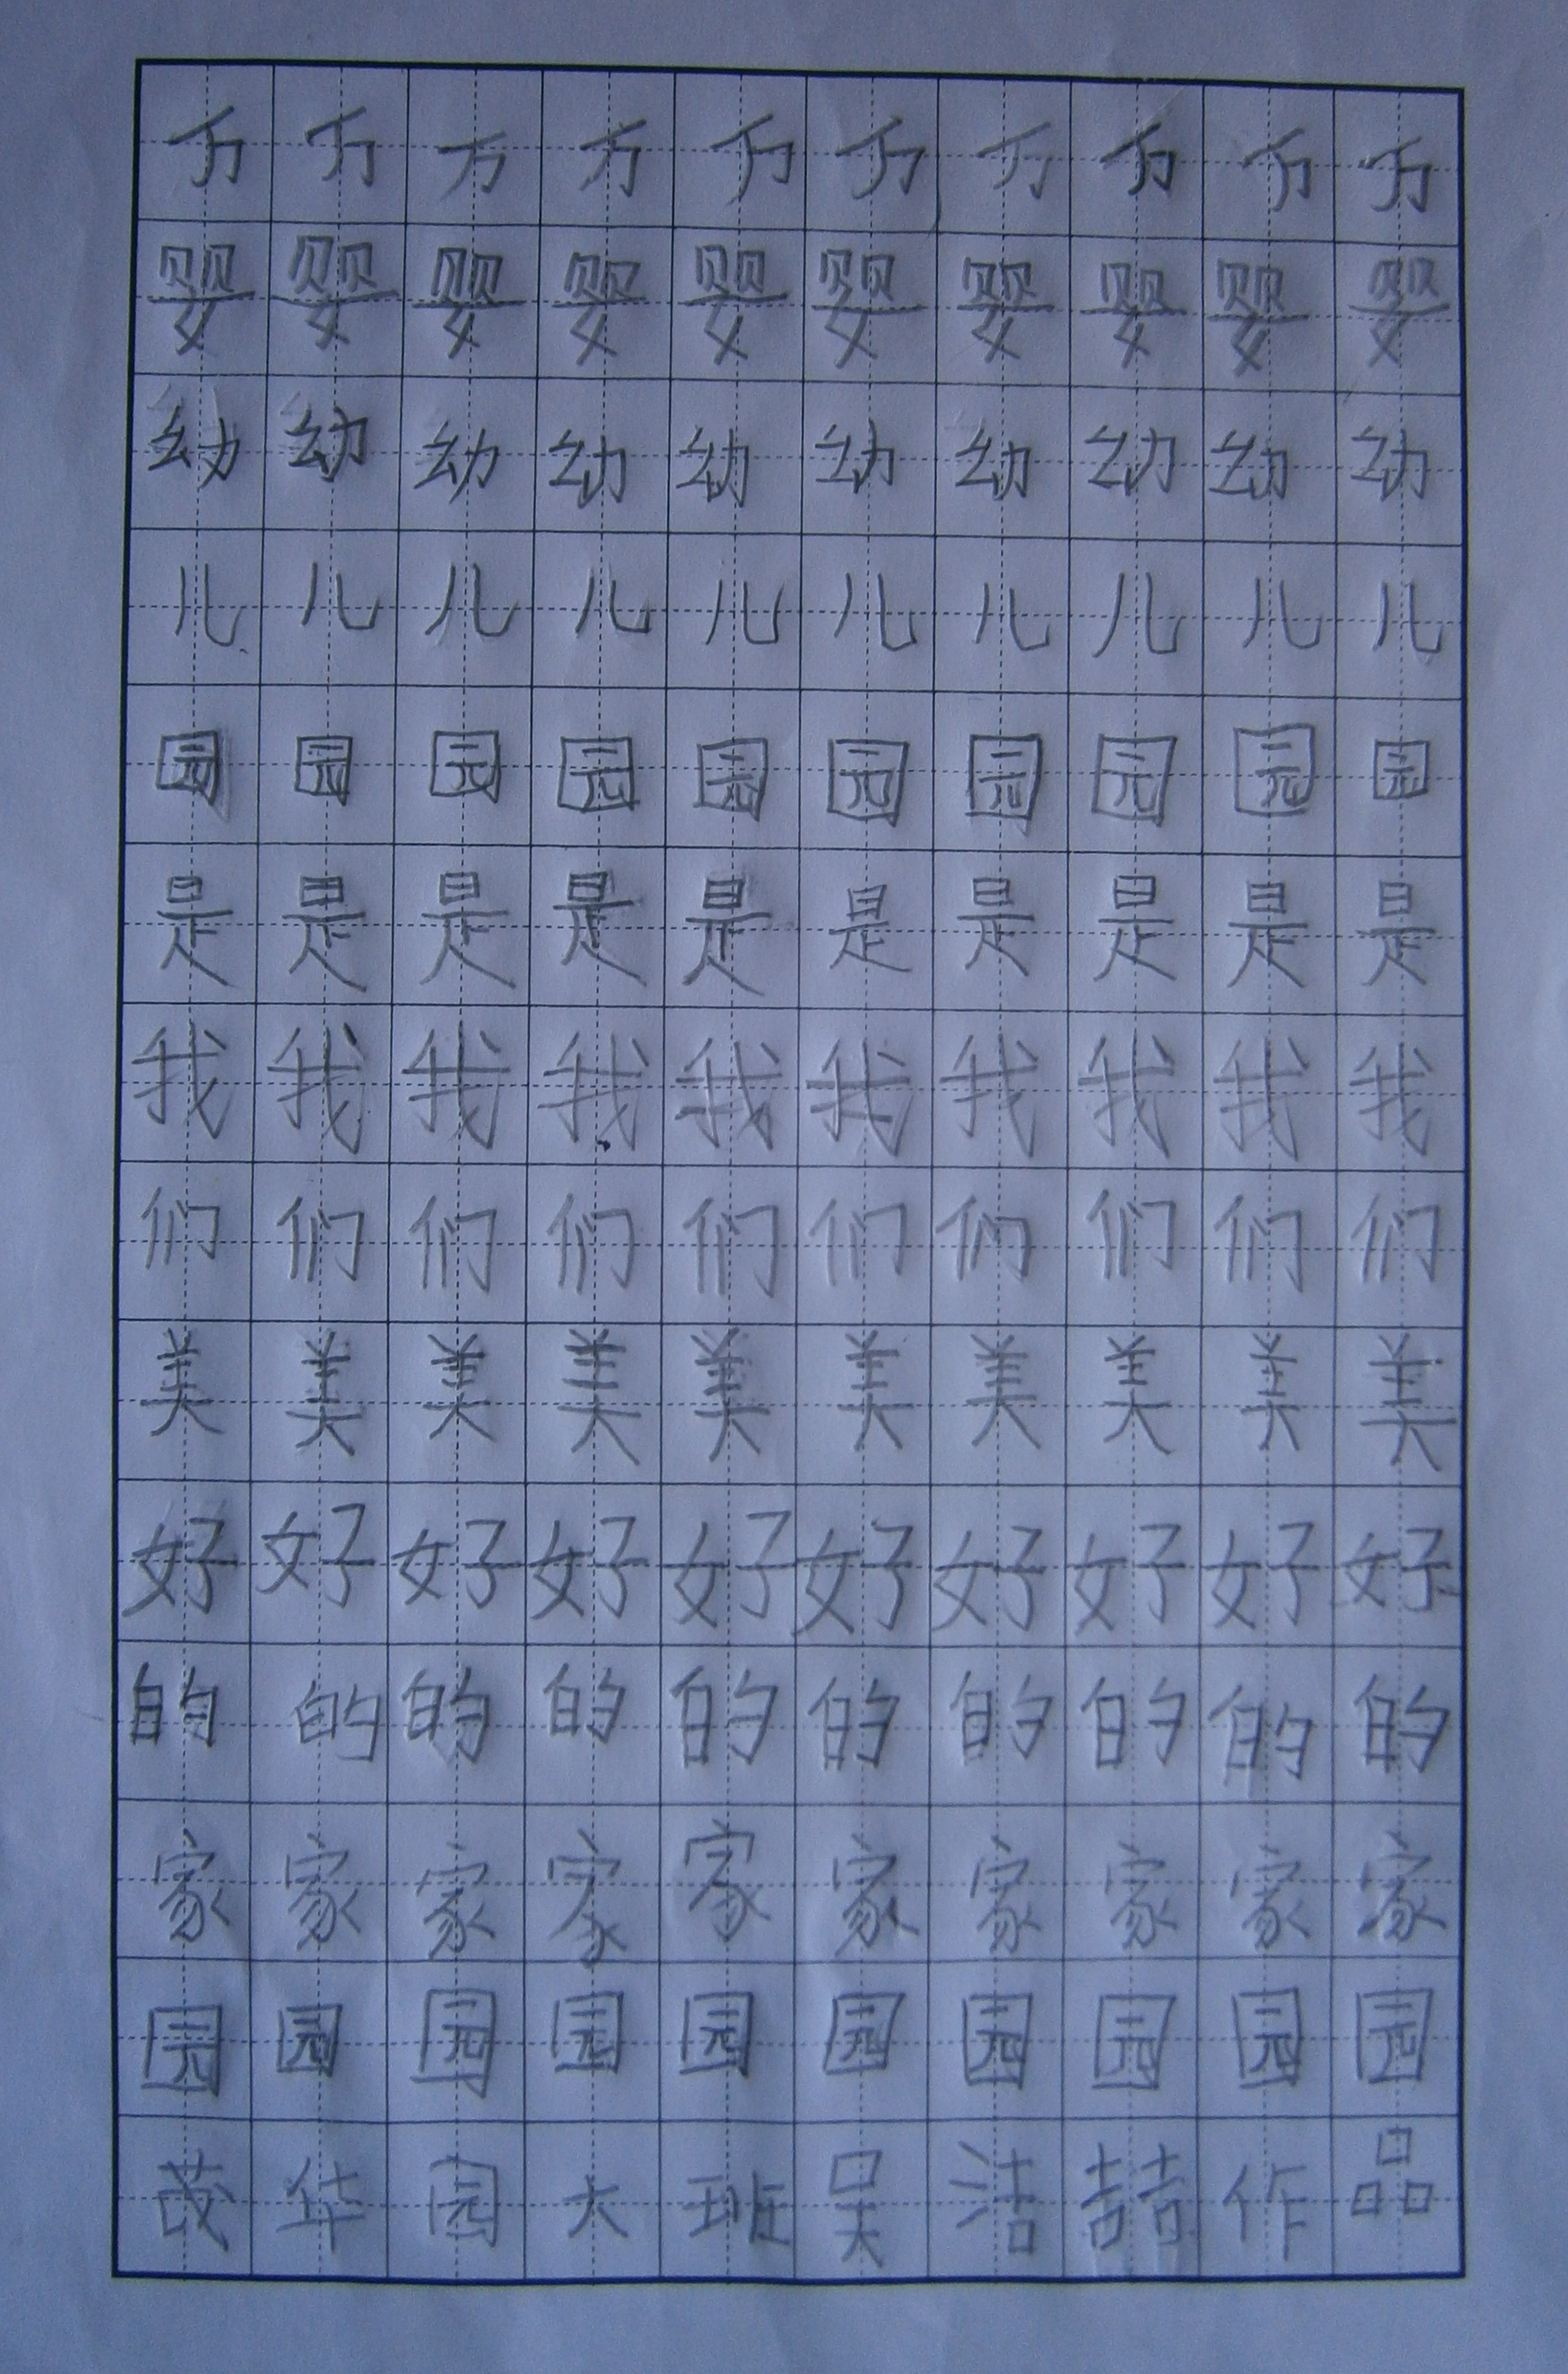 万万万万万万万万万万
婴婴婴婴婴婴婴婴婴婴
幼幼幼幼幼幼幼幼幼幼
儿儿儿儿儿儿儿儿儿儿
园园园园园园园园园园
是是是是是是是是是是
我我我我我我我我我我
们们们们们们们们们们
美美美美美美美美美美
好好好好好好好好好好
的的的的的的的的的的
家家家家家家家家家家
园园园园园园园园园园
茂华园大班吴洁喆作品